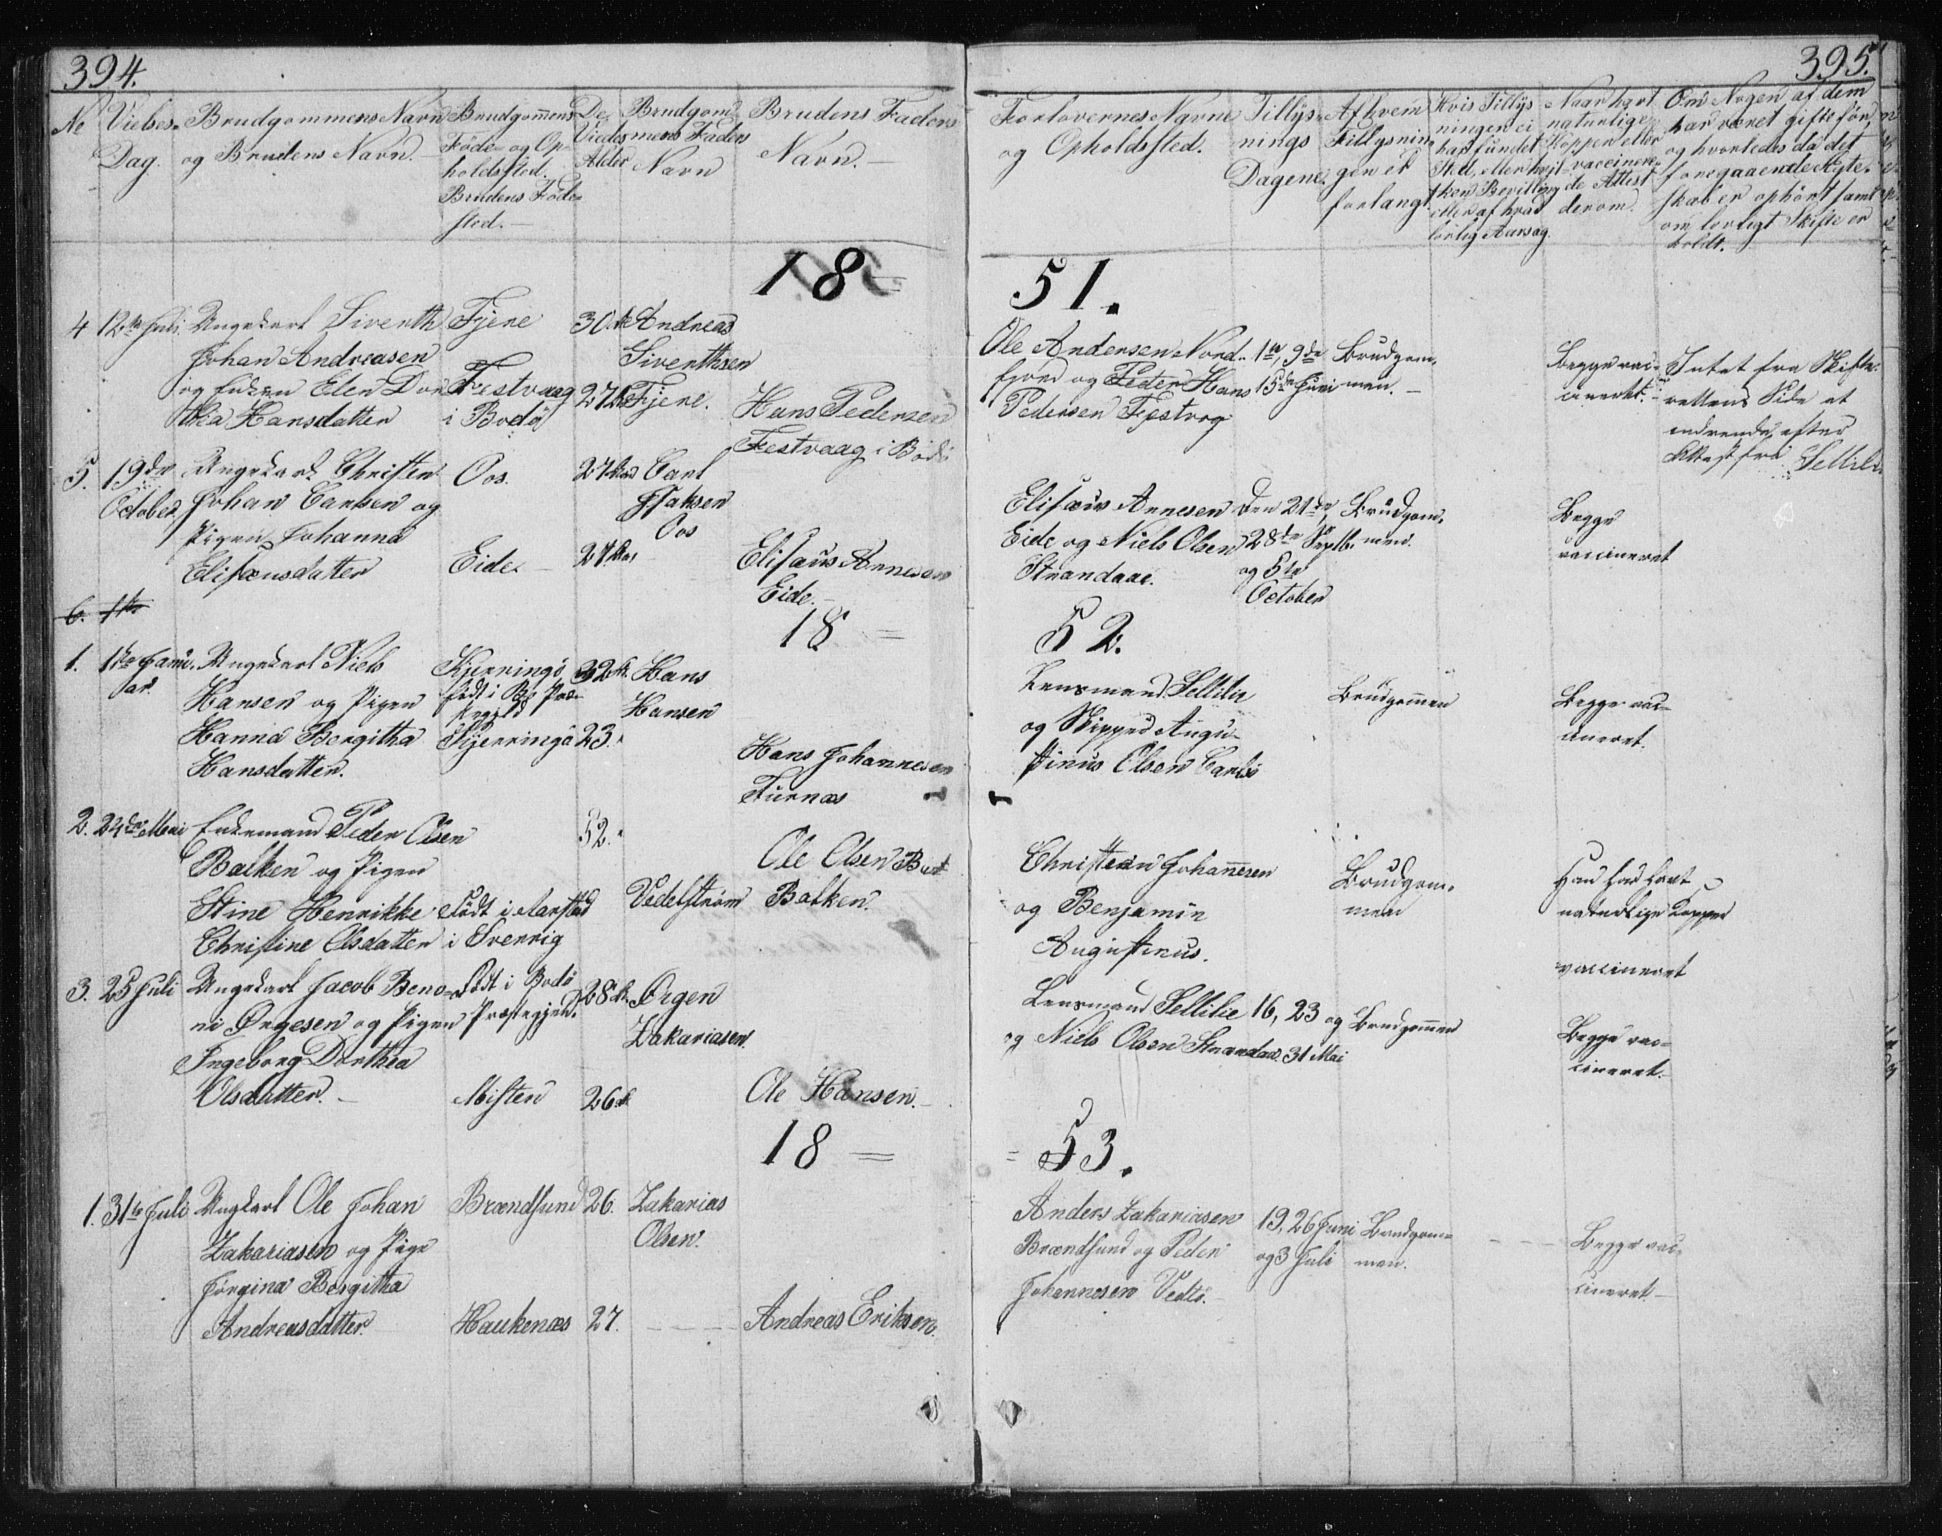 394.
No
Vielses-
Dag.
Brudgommens Navn
og Brudens Navn.
Brudgom̄ens
Føde- og Op-
holdssted.
Brudens Føde-
sted.
De
Viedes
Alder
Brudgom-
mens Faders
Navn
Brudens Faders
Navn.
18
4 12te Juli
Ungekarl Siverth
Johan Andreasen
og Enken Elen Dor
thea Hansdatter
Fjere
Festvaag
i Bodø
30
27
Andreas
Siverthsen
Fjere.
Hans Pedersen
Festvaag i Bodø
5. 19de
October
Ungekarl Christen
Johan Carlsen og
Pigen Johanna
Elisæusdatter
Oos.
Eide.
27
27
Carl
Isaksen
Oos
Elisæus Annesen
Eide.
6. 1te
18 =
1. 1te Janu-
ar.
Ungekarl Niels
Hansen og Pigen
Hanna Bergitha
Hansdatter.
Kjerringø
født i Bø Præ-
stegjeld
Kjerringø
32
23.
Hans
Hansen
Hans Johannesen
Furnæs
2. 24de Mai
Enkemand Peder Olsen
Balken og Pigen
Stine Henrikke
Christine Olsdatter
Født i Aarstad
i Sverrig
52.
Vedelstrøm
Ole Olsen
Balken.
3. 25 Juli
Ungekarl Jacob Beno-
ni Ørgesen og Pigen
Ingeborg Dorthea
Olsdatter.
Født i Bodø
Præstegjeld.
Misten
28
26
Ørgen
Zakariasen.
Ole Hansen.
18 =
1. 31te Juli
Ungkarl Ole Johan
Zakariasen og Pige
Jørgina Bergitha
Andreasdatter
Brændsund
Haukenæs
26.
27.
Zakarias
Olsen.
Andreas Eriksen.
395.
Forlovernes Navne
og Opholdssted.
Tillys-
nings
Dagene.
Af hvem
Tillysnin-
gen er
forlangt
Hvis Tillys
ningen ei
har fundet
Sted, eller hvil-
ken Bevilling
eller af hvad
lovlig Aarsag.
Naar havt
naturlige
Kopper eller
vaccinere-
de Attest
derom.
Om Nogen af dem
har været gifte før,
og hvorledes da det
foregaaende Ægte-
skab er ophørt samt
om lovligt Skifte er
holdt.
51.
Ole Andersen Nord-
fjord og Peder Hans
Pedersen Festvog
1te, 9de
15de Juni
Brudgom-
men.
Begge vac-
cineret.
Intet fra Skifte-
rettens Side at
indvende, efter
Attest fra Sellilie
Elisæus Annesen
Eide og Niels Olsen
Strandaae.
Den 21de,
28de Septb.
og 5te
October
Brudgom-
men.
Begge
vaccineret
52.
Lensmand Sellilie
og Skipper Augu-
stinus Olsen Carlsø
Brudgom̄en
Begge vac-
cineret.
Christian Johan̄esen
og Benjamin
Augustinus.
Brudgom-
men
Han har havt
naturlige Kopper
vaccineret
Lensmand Sellilie
og Niels Olsen Strandaa.
16, 23 og
31 Mai
Brudgom̄en
Begge vac-
cineret.
= 53.
Anders Zakariasen
Brændsund og Peder
Johannesen Vedtø.
19, 26 Juni
og 3 Juli
Brudgom-
men.
Begge vac-
cineret.